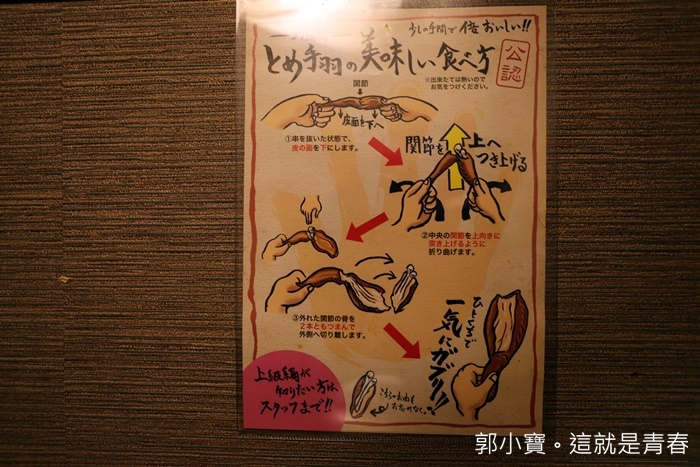 少しの手間で倍おいしい!!
とめ手羽の美味しい食べ方
公認
※出来たては熱いので
お気をつけください。
関節
皮面を下へ
①串を抜いた状態で、
皮の面を下にします。
関節を上へ
つき上げる
②中央の関節を上向きに
突き上げるように
折り曲げます。
③外れた関節の骨を
2本ともつまんで
外側へ切り離します。
ひとくちで
一気にガブリ!!
上級編が
知りたい方は
スタッフまで!!
こちらのお肉も
お忘れなく。
郭小寶。這就是青春